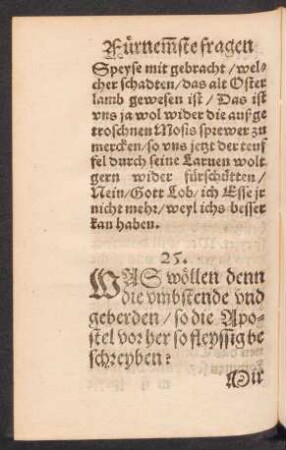 Fürnemste fragen
Speyse mit gebracht / wel-
cher schadten / das alt Oster
lamb gewesen ist / Das ist
vns ja wol wider die auf ge
troschnen Mosis sprewer zu
mercken / so vns jetzt der teuf
fel durch seine Laruen wolt
gern wider fürschütten /
Nein / Gott Lob / ich Esse jr
nicht mehr / weyl ichs besser
kan haben.
25.
WAS wöllen denn
die vmbstende vnd
geberden / so die Apo-
stel vor her so fleyssig be
schreyben?
Wir